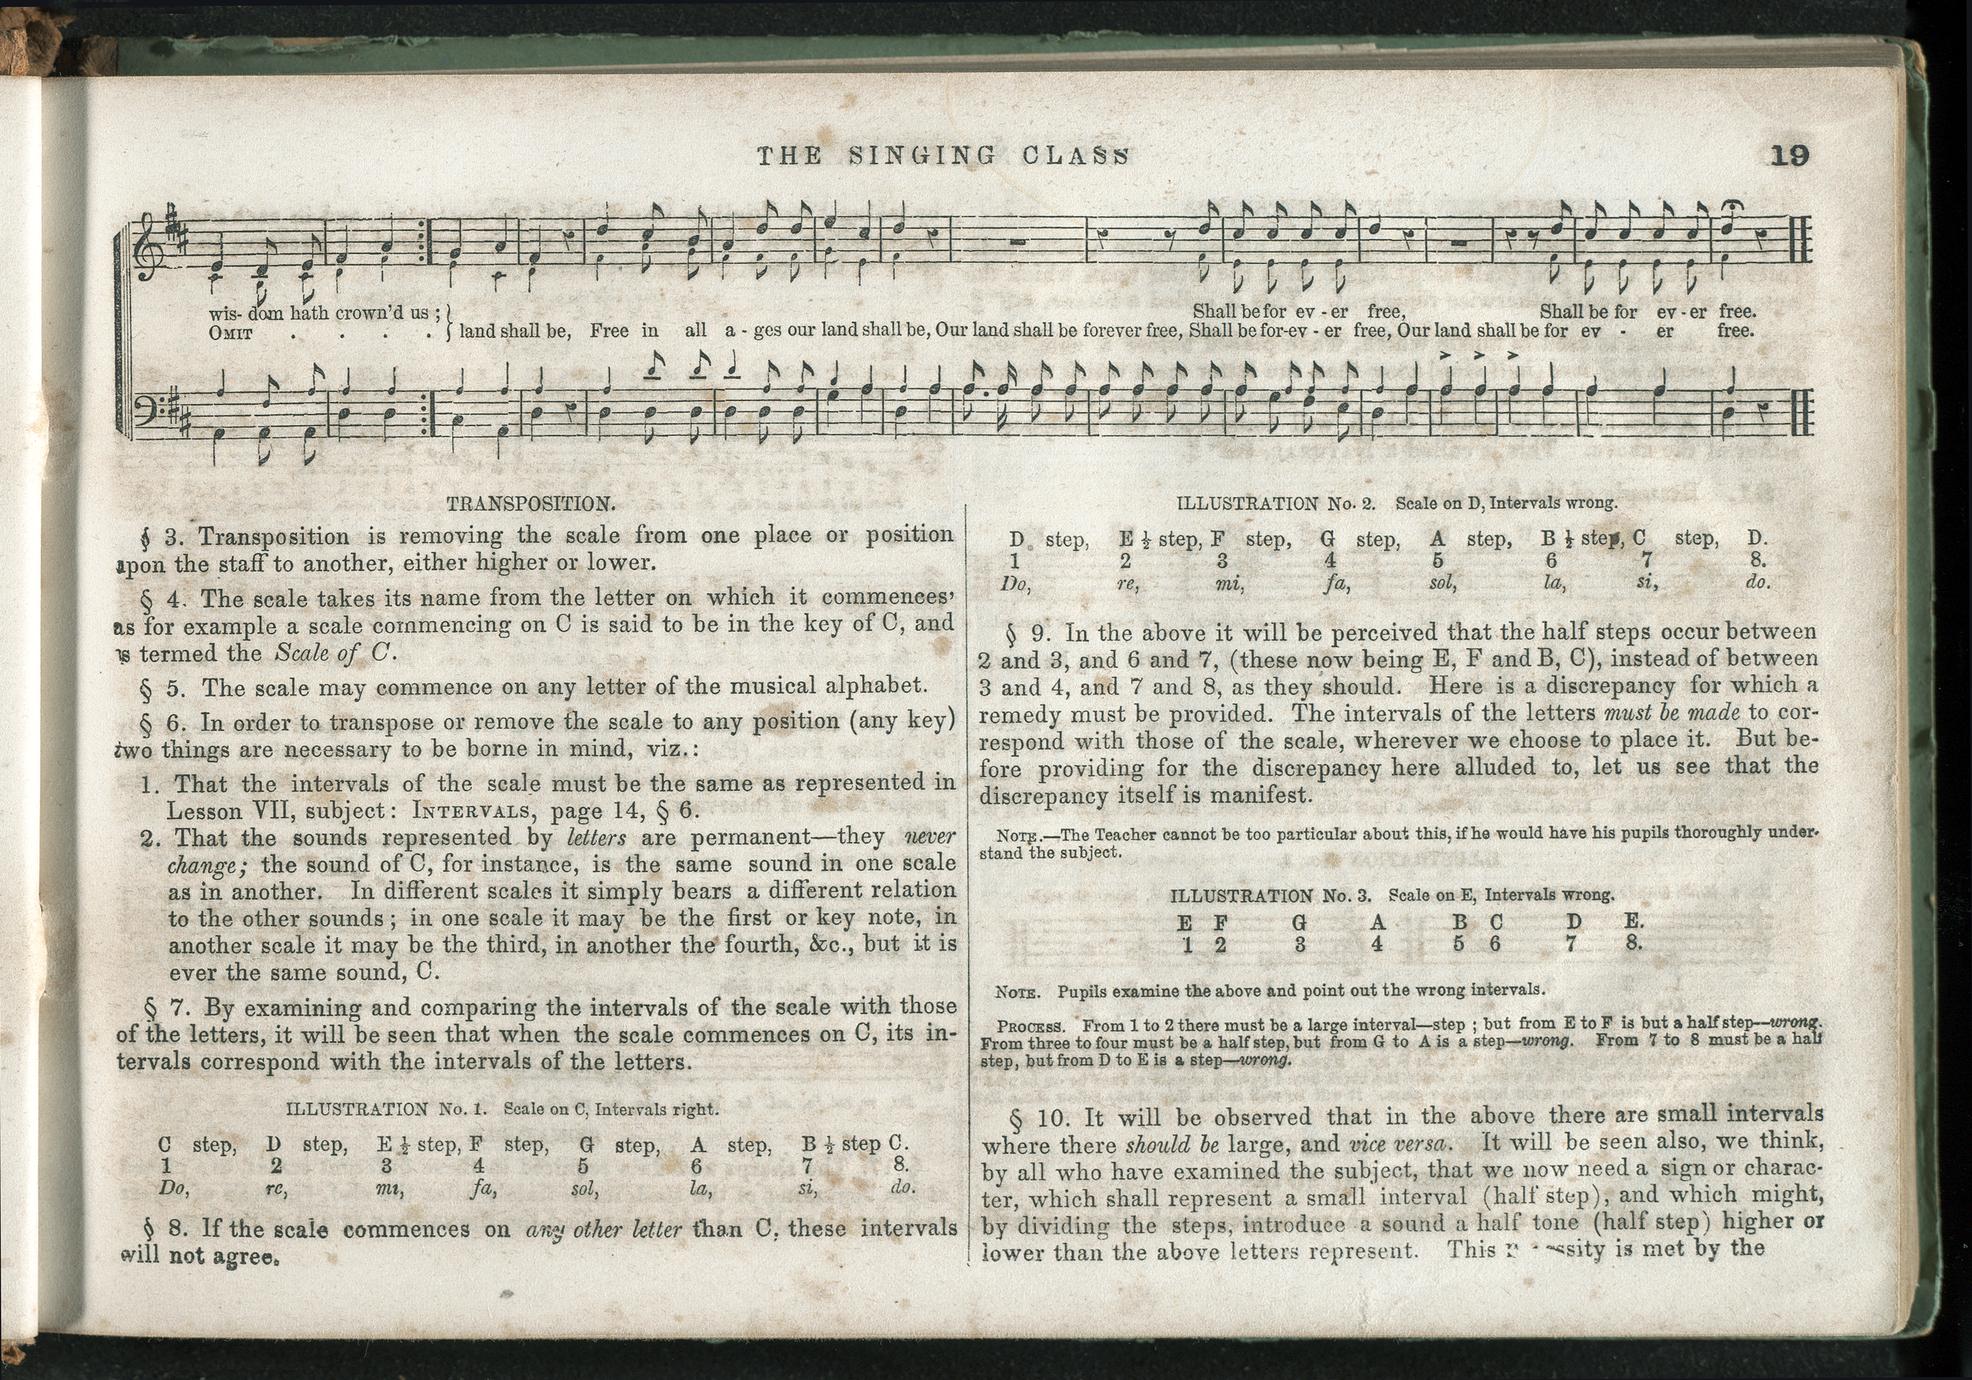 THE SINGING CLASS
19
wis- dom hath crown'd us ; Shall be for ev - er free, Shall be for ev - er free.
OMIT . . . . land shall be, Free in all a - ges our land shall be, Our land shall be forever free, Shall be for-ev - er free, Our land shall be for ev - er free.
TRANSPOSITION.
§ 3. Transposition is removing the scale from one place or position
upon the staff to another, either higher or lower.
§ 4. The scale takes its name from the letter on which it commences'
as for example a scale commencing on C is said to be in the key of C, and
is termed the Scale of C.
§ 5. The scale may commence on any letter of the musical alphabet.
§ 6. In order to transpose or remove the scale to any position (any key)
two things are necessary to be borne in mind, viz.:
1. That the intervals of the scale must be the same as represented in
Lesson VII, subject: INTERVALS, page 14, § 6.
2. That the sounds represented by letters are permanent—they never
change; the sound of C, for instance, is the same sound in one scale
as in another. In different scales it simply bears a different relation
to the other sounds; in one scale it may be the first or key note, in
another scale it may be the third, in another the fourth, &c., but it is
ever the same sound, C.
§ 7. By examining and comparing the intervals of the scale with those
of the letters, it will be seen that when the scale commences on C, its in-
tervals correspond with the intervals of the letters.
ILLUSTRATION No. 1. Scale on C, Intervals right.
C step, D step, E ½ step, F step, G step, A step, B ½ step C.
1 2 3 4 5 6 7 8.
Do, re, mi, fa, sol, la, si, do.
§ 8. If the scale commences on any other letter than C, these intervals
will not agree.
ILLUSTRATION No. 2. Scale on D, Intervals wrong.
D step, E ½ step, F step, G step, A step, B ½ step, C step, D.
1 2 3 4 5 6 7 8.
Do, re, mi, fa, sol, la, si, do.
§ 9. In the above it will be perceived that the half steps occur between
2 and 3, and 6 and 7, (these now being E, F and B, C), instead of between
3 and 4, and 7 and 8, as they should. Here is a discrepancy for which a
remedy must be provided. The intervals of the letters must be made to cor-
respond with those of the scale, wherever we choose to place it. But be-
fore providing for the discrepancy here alluded to, let us see that the
discrepancy itself is manifest.
NOTE.—The Teacher cannot be too particular about this, if he would have his pupils thoroughly under-
stand the subject.
ILLUSTRATION No. 3. Scale on E, Intervals wrong.
E F G A B C D E.
1 2 3 4 5 6 7 8.
NOTE. Pupils examine the above and point out the wrong intervals.
PROCESS. From 1 to 2 there must be a large interval—step ; but from E to F is but a half step—wrong.
From three to four must be a half step, but from G to A is a step—wrong. From 7 to 8 must be a half
step, but from D to E is a step—wrong.
§ 10. It will be observed that in the above there are small intervals
where there should be large, and vice versa. It will be seen also, we think,
by all who have examined the subject, that we now need a sign or charac-
ter, which shall represent a small interval (half step), and which might,
by dividing the steps, introduce a sound a half tone (half step) higher or
lower than the above letters represent. This is met by the